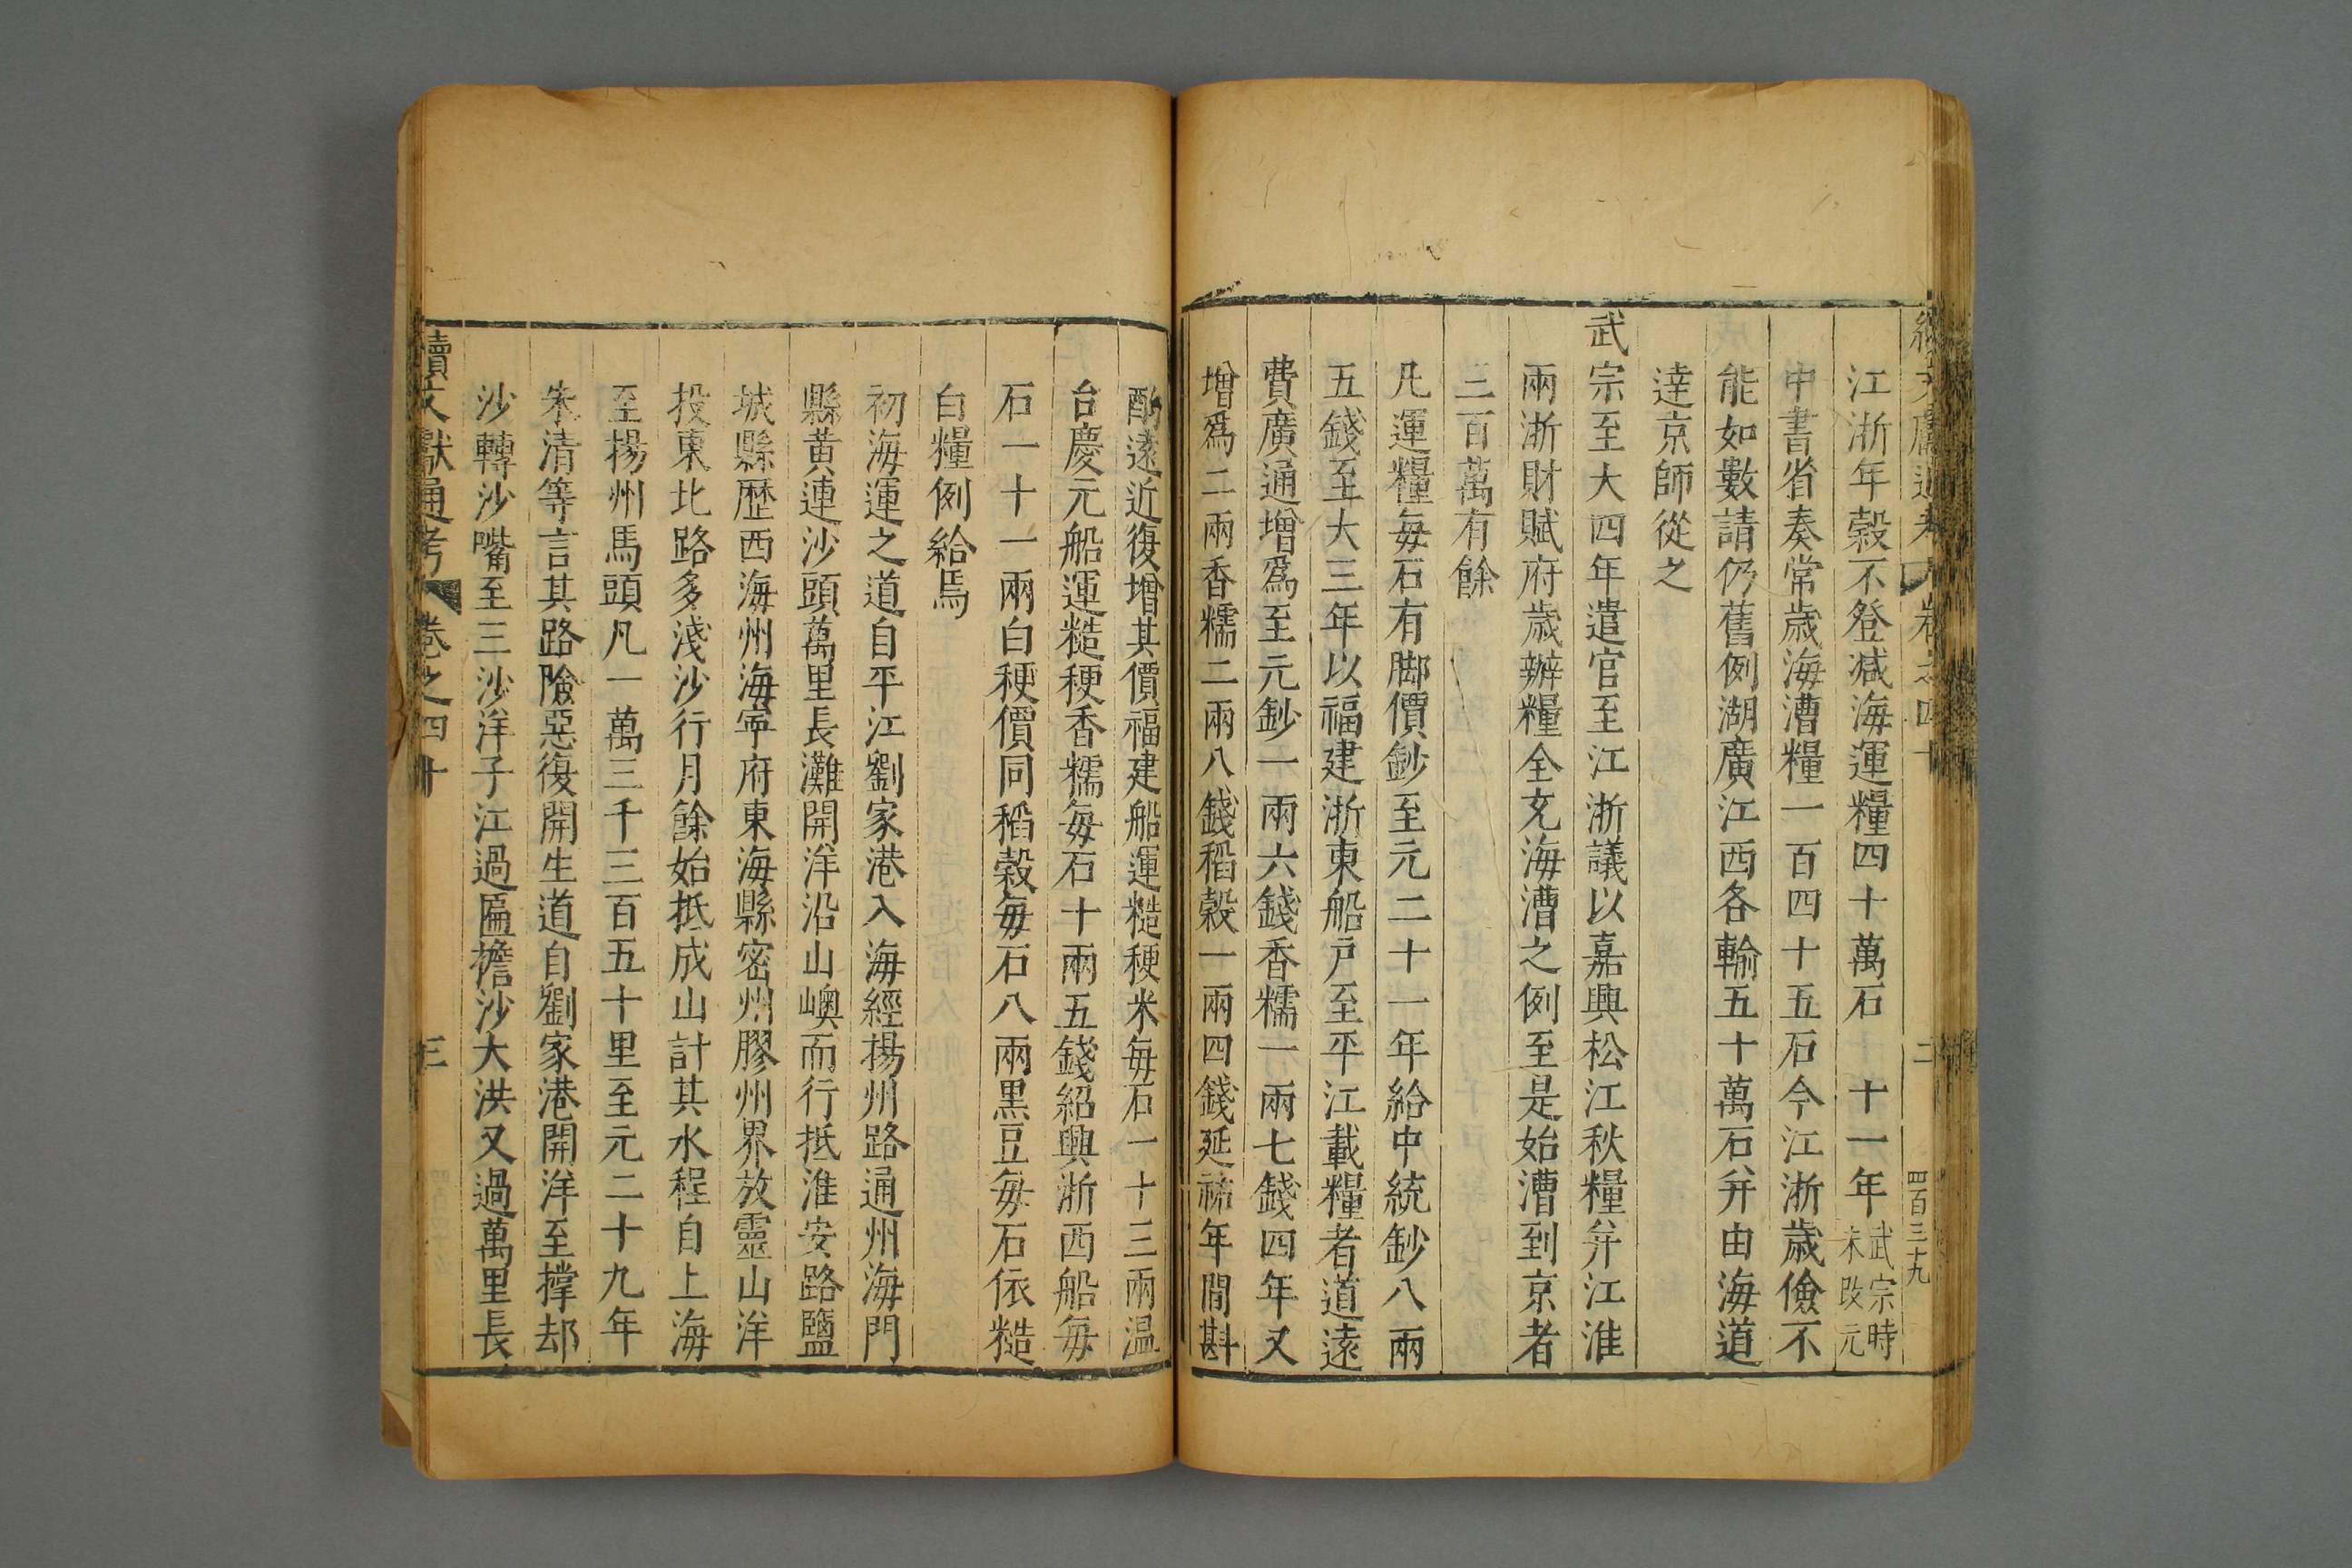 續文獻通考 卷之四十 二 四百三九
江浙年穀不登減海運糧四十萬石 十一年武宗時未改元
中書省奏常歲海漕糧一百四十五石今江浙歲儉不
能如數請仍舊例湖廣江西各輸五十萬石并由海道
達京師從之
武宗至大四年遣官至江浙議以嘉興松江秋糧并江淮
兩浙財賦府歲辦糧全充海漕之例至是始漕到京者
三百萬有餘
凡運糧每石有脚價鈔至元二十一年給中統鈔八兩
五錢至大三年以福建浙東船戶至平江載糧者道遠
費廣通增爲至元鈔一兩六錢香糯一兩七錢四年又
增爲二兩香糯二兩八錢稻穀一兩四錢延祐年間斟
酌遠近復增其價福建船運糙粳米每石一十三兩温
台慶元船運糙粳香糯每石十兩五錢紹興浙西船每
石一十一兩白粳價同稻穀每石八兩黑豆每石依糙
白糧例給焉
初海運之道自平江劉家港入海經揚州路通州海門
縣黃連沙頭萬里長灘開洋沿山嶼而行抵淮安路鹽
城縣歷西海州海寧府東海縣密州膠州界放靈山洋
投東北路多淺沙行月餘始抵成山計其水程自上海
至揚州馬頭凡一萬三千三百五十里至元二十九年
朱清等言其路險惡復開生道自劉家港開洋至撐却
沙轉沙嘴至三沙洋子江過匾擔沙大洪又過萬里長
續文獻通考 卷之四十 三